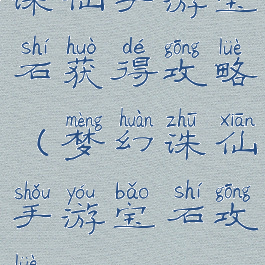 诛仙手游宝
shí huò dé gōng lüè
石获得攻略
mèng huàn zhū xiān
（梦幻诛仙
shǒu yóu bǎo shí gōng
手游宝石攻
lüè